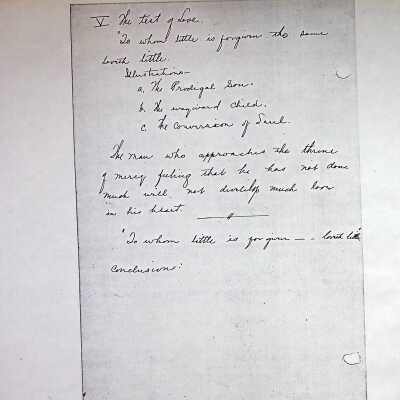 V The test of Love.
"To whom little is forgiven the same
loveth little.
Illustrations—
a. The Prodigal Son.
b. The wayward child.
c. The Conversion of Saul.
The man who approaches the throne
of mercy feeling that he has not done
much will not develop much love
in his heart.
"To whom little is forgiven — - loveth little"
Conclusions: